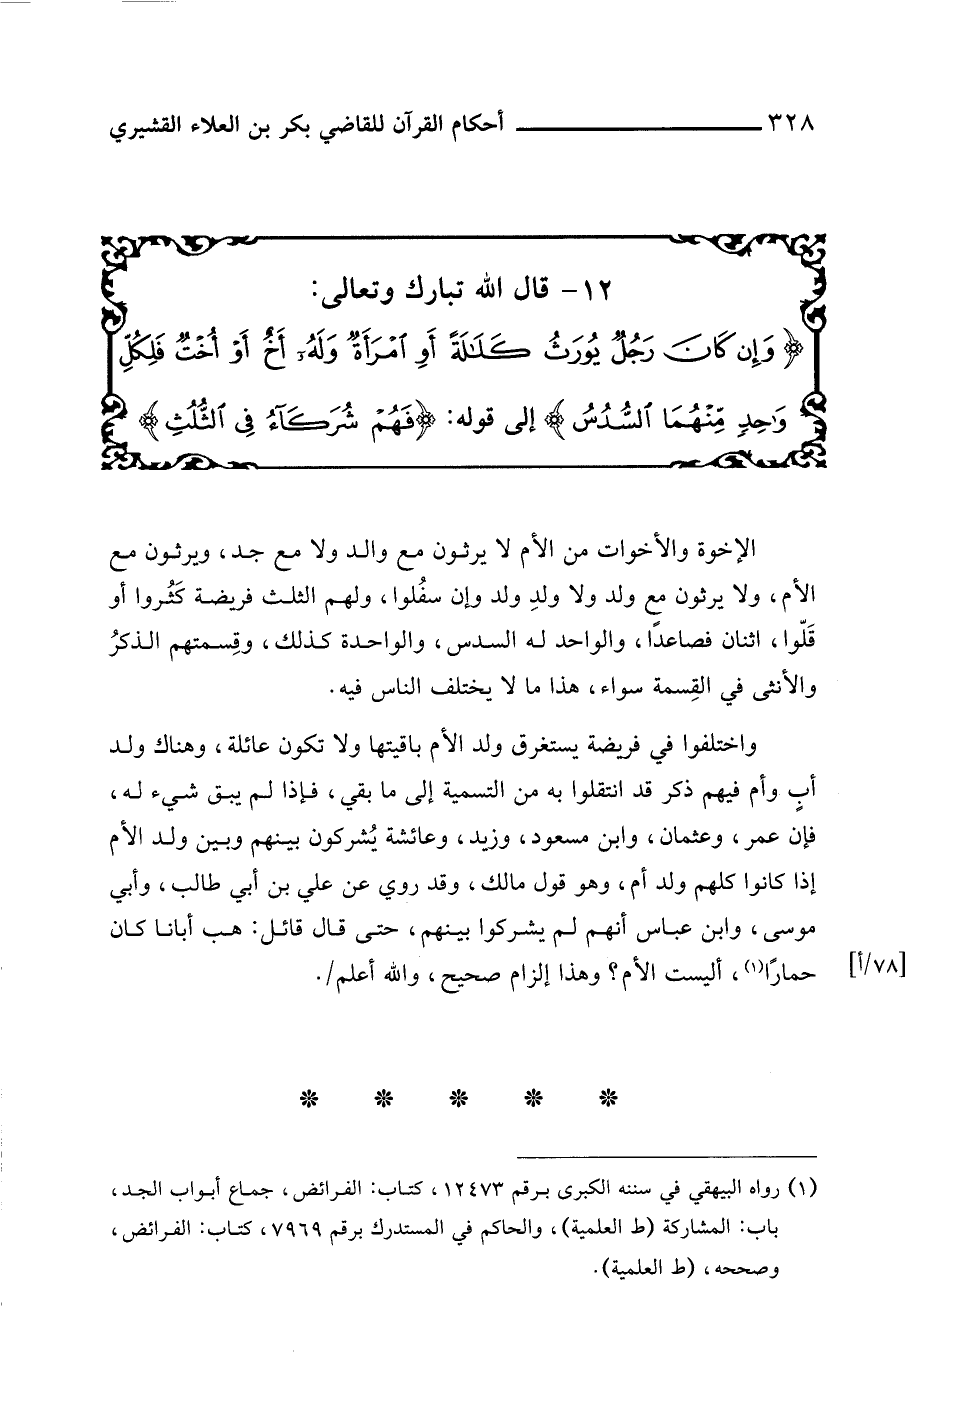 ٣٢٨ أحكام القرآن للقاضي بكر بن العلاء القشيري
١٢- قال الله تبارك وتعالى:
﴿ وَإِن كَانَ رَجُلٌ يُورَثُ كَلَٰلَةً أَوِ ٱمْرَأَةٌ وَلَهُۥٓ أَخٌ أَوْ أُخْتٌ فَلِكُلِّ
وَٰحِدٍ مِّنْهُمَا ٱلسُّدُسُ ﴾ إلى قوله: ﴿ فَهُمْ شُرَكَآءُ فِى ٱلثُّلُثِ ﴾
الإخوة والأخوات من الأم لا يرثون مع والد ولا مع جد، ويرثون مع
الأم، ولا يرثون مع ولد ولا ولدِ ولد وإن سفُلوا، ولهم الثلث فريضة كَثُروا أو
قَلّوا، اثنان فصاعدًا، والواحد له السدس، والواحدة كذلك، وقِسمتهم الذكرُ
والأنثى في القِسمة سواء، هذا ما لا يختلف الناس فيه.
واختلفوا في فريضة يستغرق ولد الأم باقيتها ولا تكون عائلة، وهناك ولد
أبٍ وأم فيهم ذكر قد انتقلوا به من التسمية إلى ما بقي، فإذا لم يبق شيء له،
فإن عمر، وعثمان، وابن مسعود، وزيد، وعائشة يُشركون بينهم وبين ولد الأم
إذا كانوا كلهم ولد أم، وهو قول مالك، وقد روي عن علي بن أبي طالب، وأبي
موسى، وابن عباس أنهم لم يشركوا بينهم، حتى قال قائل: هب أبانا كان
حمارًا(١)، أليست الأم؟ وهذا إلزام صحيح، والله أعلم/.
[٧٨/أ]
(١) رواه البيهقي في سننه الكبرى برقم ١٢٤٧٣، كتاب: الفرائض، جماع أبواب الجد،
باب: المشاركة (ط العلمية)، والحاكم في المستدرك برقم ٧٩٦٩، كتاب: الفرائض،
وصححه، (ط العلمية).